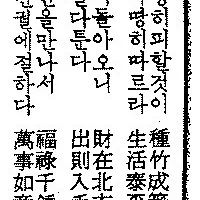 히피할것이
히따르라
돌아오니
다툰다
을만나서
궐에절하다
種竹成
生活泰
財在北
出則入
福祿千
萬事如意